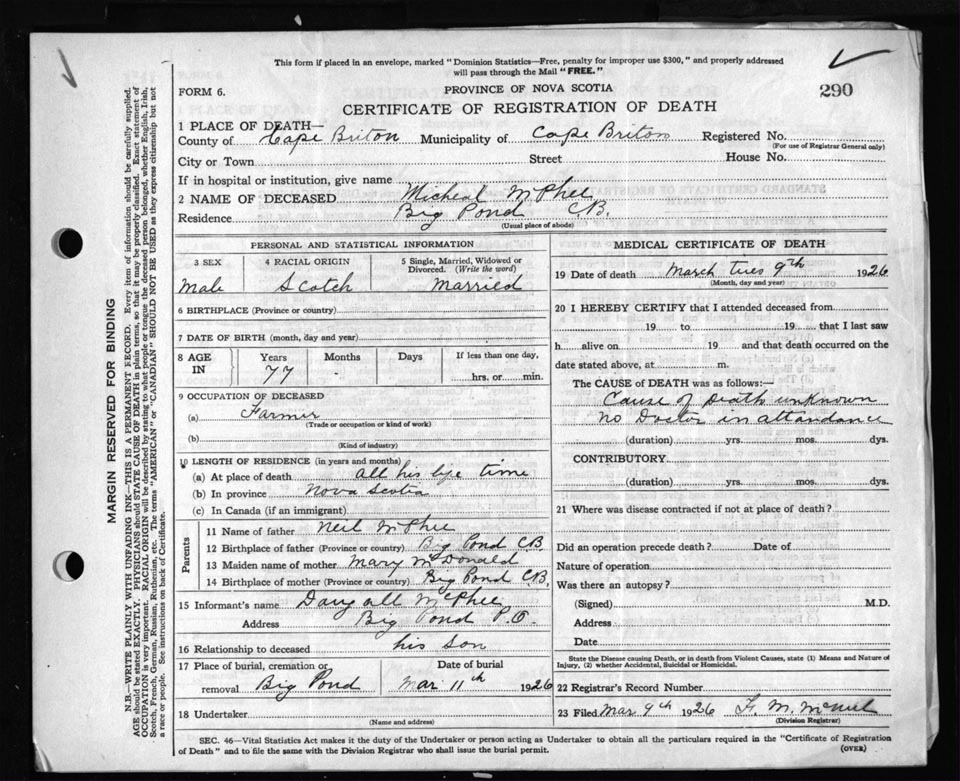 This form if placed in an envelope, marked "Dominion Statistics—Free, penalty for improper use $300," and properly addressed
will pass through the Mail "FREE."
FORM 6.
PROVINCE OF NOVA SCOTIA
290
CERTIFICATE OF REGISTRATION OF DEATH
1 PLACE OF DEATH—
County of Cape Briton Municipality of Cape Briton Registered No.
(For use of Registrar General only)
City or Town Street House No.
If in hospital or institution, give name
2 NAME OF DECEASED Micheal McPhee
Residence Big Pond C.B.
(Usual place of abode)
PERSONAL AND STATISTICAL INFORMATION
3 SEX 4 RACIAL ORIGIN 5 Single, Married, Widowed or
Divorced. (Write the word)
Male Scotch Married
6 BIRTHPLACE (Province or country)
7 DATE OF BIRTH (month, day and year)
8 AGE IN Years Months Days If less than one day,
77 hrs. or min.
9 OCCUPATION OF DECEASED
(a) Farmer
(Trade or occupation or kind of work)
(b)
(Kind of industry)
10 LENGTH OF RESIDENCE (in years and months)
(a) At place of death all his lye time
(b) In province Nova Scotia
(c) In Canada (if an immigrant)
Parents
11 Name of father Neil McPhee
12 Birthplace of father (Province or country) Big Pond C.B.
13 Maiden name of mother Mary McDonald
14 Birthplace of mother (Province or country) Big Pond C.B.
15 Informant's name Dougall McPhee
Address Big Pond P.O.
16 Relationship to deceased his son
17 Place of burial, cremation or Date of burial
removal Big Pond Mar 11th 1926
18 Undertaker
(Name and address)
MEDICAL CERTIFICATE OF DEATH
19 Date of death March tues 9th 1926
(Month, day and year)
20 I HEREBY CERTIFY that I attended deceased from
19 to 19 that I last saw
h alive on 19 and that death occurred on the
date stated above, at m.
The CAUSE of DEATH was as follows:—
Cause of Death unknown
no Doctor in attendance
(duration) yrs. mos. dys.
CONTRIBUTORY
(duration) yrs. mos. dys.
21 Where was disease contracted if not at place of death?
Did an operation precede death? Date of
Nature of operation
Was there an autopsy?
(Signed) M.D.
Address
Date
State the Disease causing Death, or in death from Violent Causes, state (1) Means and Nature of
Injury, (2) whether Accidental, Suicidal or Homicidal.
22 Registrar's Record Number
23 Filed Mar 9th 1926 McNeil
(Division Registrar)
SEC. 46—Vital Statistics Act makes it the duty of the Undertaker or person acting as Undertaker to obtain all the particulars required in the "Certificate of Registration
of Death" and to file the same with the Division Registrar who shall issue the burial permit.
(OVER)
MARGIN RESERVED FOR BINDING
N.B.—WRITE PLAINLY WITH UNFADING INK—THIS IS A PERMANENT RECORD. Every item of information should be carefully supplied.
AGE should be stated EXACTLY. PHYSICIANS should STATE CAUSE OF DEATH in plain terms, so that it may be properly classified. Exact statement of
OCCUPATION is very important. RACIAL ORIGIN will be described by stating to what people or tongue the deceased person belonged, whether English, Irish,
Scotch, French, German, Russian, Ruthenian, etc. The terms "AMERICAN" or "CANADIAN" SHOULD NOT BE USED as they express citizenship but not
a race or people. See instructions on back of Certificate.